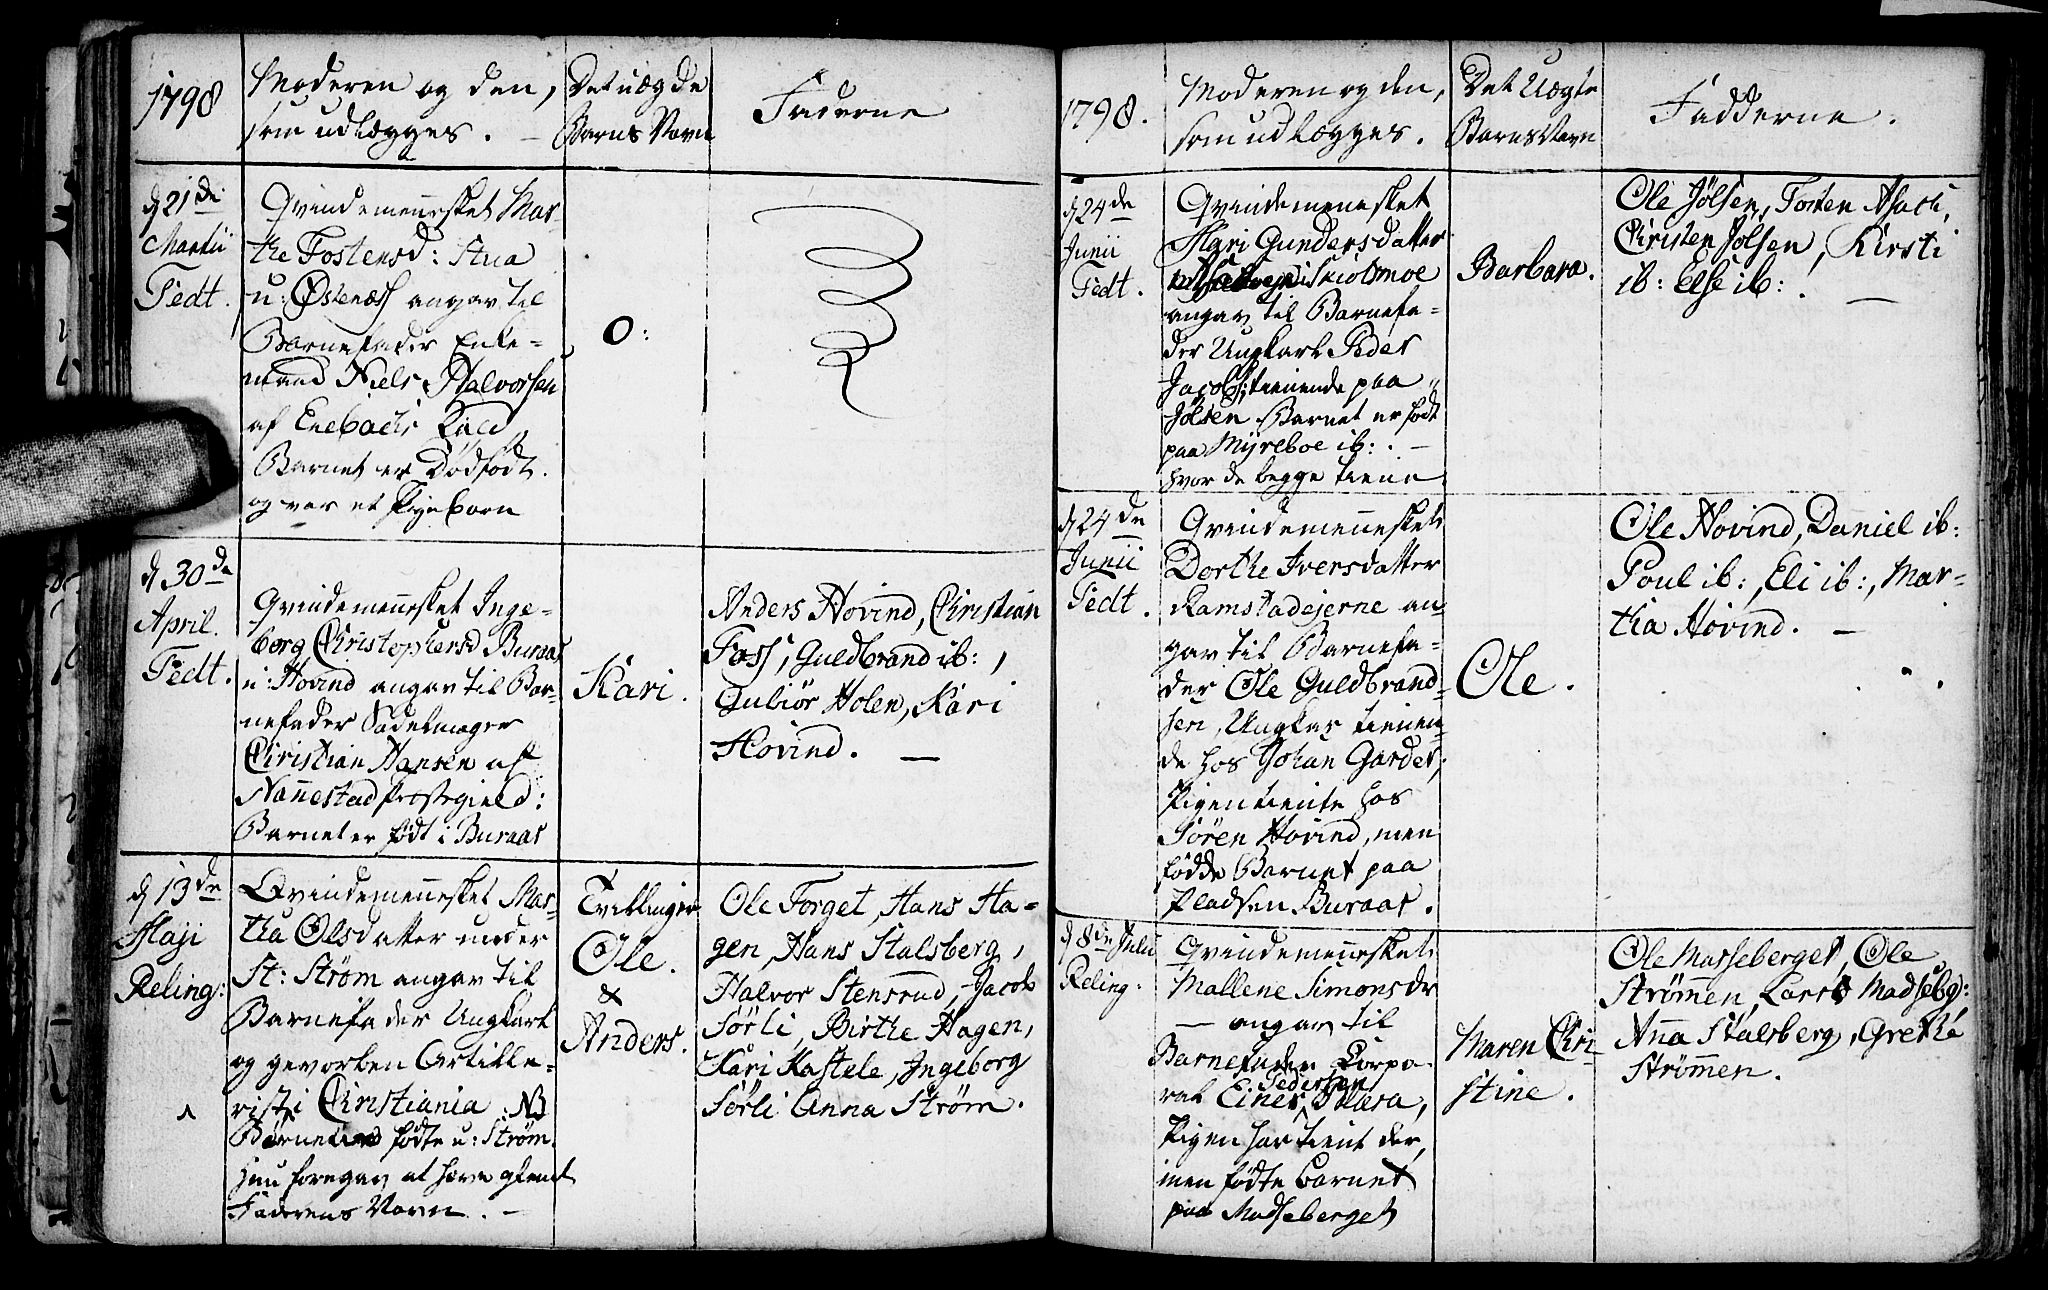 1798
Moderen og den,
som udlægges. —
Det uægde
Barns Navn
Faderne
d 21de
Martii
Fedt.
Qvindemennesket Mar-
the Tostensd: Stua
u: Østenæss angav til
Barnefader Enke-
mand Niels Halvorsen
af Enebachs
Barnet er Dødfødt.
og var et Pigebarn
O:
d 30de
April.
Fedt.
Qvindemennesket Inge-
borg Christophersd Buraas
u: Hovind angav til Bar-
nefader Sadelmager
Christian Hansen af
Nannestad Præstegield:
Barnet er født i Buraas
Kari.
Anders Hovind, Christian
Foss, Guldbrand ib:,
Guliør Holen, Kari
Hovind. —
d 13de
Maji
Reling:
Qvindemennesket Mar-
tha Olsdatter under
St: Strøm angav til
Barnefader Ungkarl
og gevorben Artille-
rist i Christiania. NB
Børnene fødte u: Strøm.
hun foregav at have glemt
Faderens Navn. —
Tvillinger
Ole.
&
Anders.
Ole Torget, Hans Ha-
gen, Hans Stalsberg,
Halvor Stensrud, Jacob
Sørli, Birthe Hagen,
Kari Kastele, Ingeborg
Sørli Anna Strøm.
1798.
Moderen og den,
som udlægges.
Det Uægte
Barns Navn
Fadderne.
d 24de
Junii
Fedt.
Qvindemennesket
Mari Gundersdatter
Skiolmoe
angav til Barnefa-
der Ungkarl Peder
Jacobs: tienende paa
Jølsen Barnet er født
paa Myreboe ib: . —
hvor de begge tiene
Barbara.
Ole Jølsen, Tosten Asach,
Christen Jølsen, Kirsti
ib: Else ib: . —
d 24de
Junii
Fedt.
Qvindemennesket
Dorthe Iversdatter
Ramstadejerne an-
gav til Barnefa-
der Ole Guldbrand-
sen, Ungkar tienen-
de hos Johan Garder,
Pigen tiente hos
Søren Hovind, men
fødde Barnet paa
Pladsen Buraas.
Ole.
Ole Hovind, Daniel ib:
Poul ib:, Eli ib:, Mar-
tha Hovind. —
d 8de Julii
Reling:
Qvindemennesket
Mallene Simonsdr
— angav til
Barnefader Corpo-
Pedersen
ral Einer Palera,
Pigen har tient der,
men fødte Barnet
paa Madseberget
Maren Chri-
stine.
Ole Masseberget, Ole
Strømmen, Lars Madsebg:
Anna Stalsberg, Grethe
Strømmen.